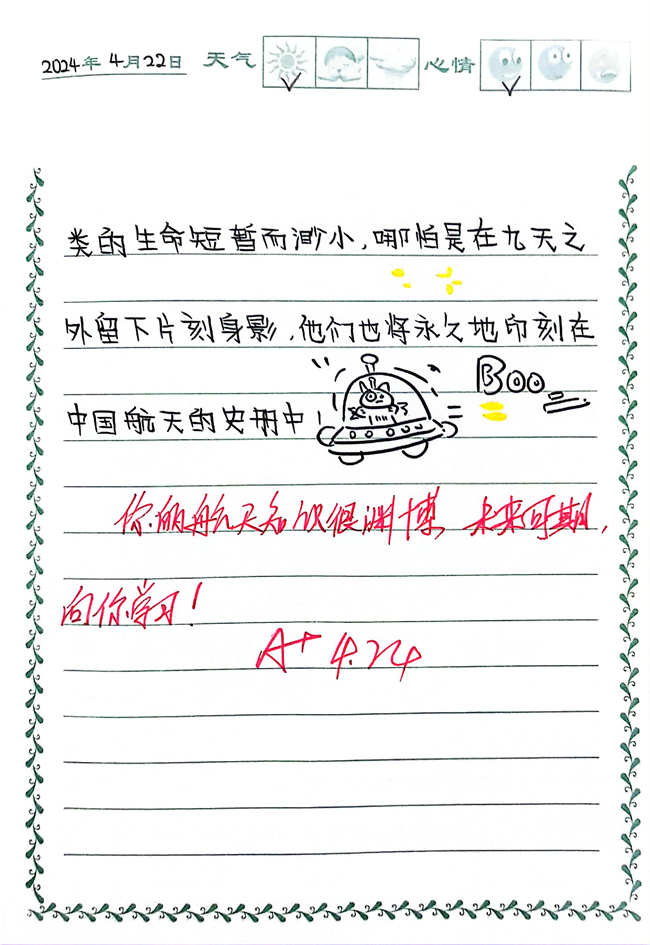 2024年 4月22日 天气 心情
类的生命短暂而渺小,哪怕是在九天之
外留下片刻身影,他们也将永久地印刻在
中国航天的史册中!
Boo
你的航天知识很渊博,未来可期,
向你学习!
A+ 4.24